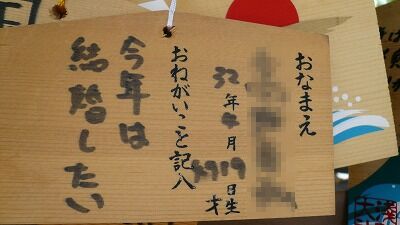 おなまえ
32年4月日生
才
おねがいごとを記入
今年は
結婚したい